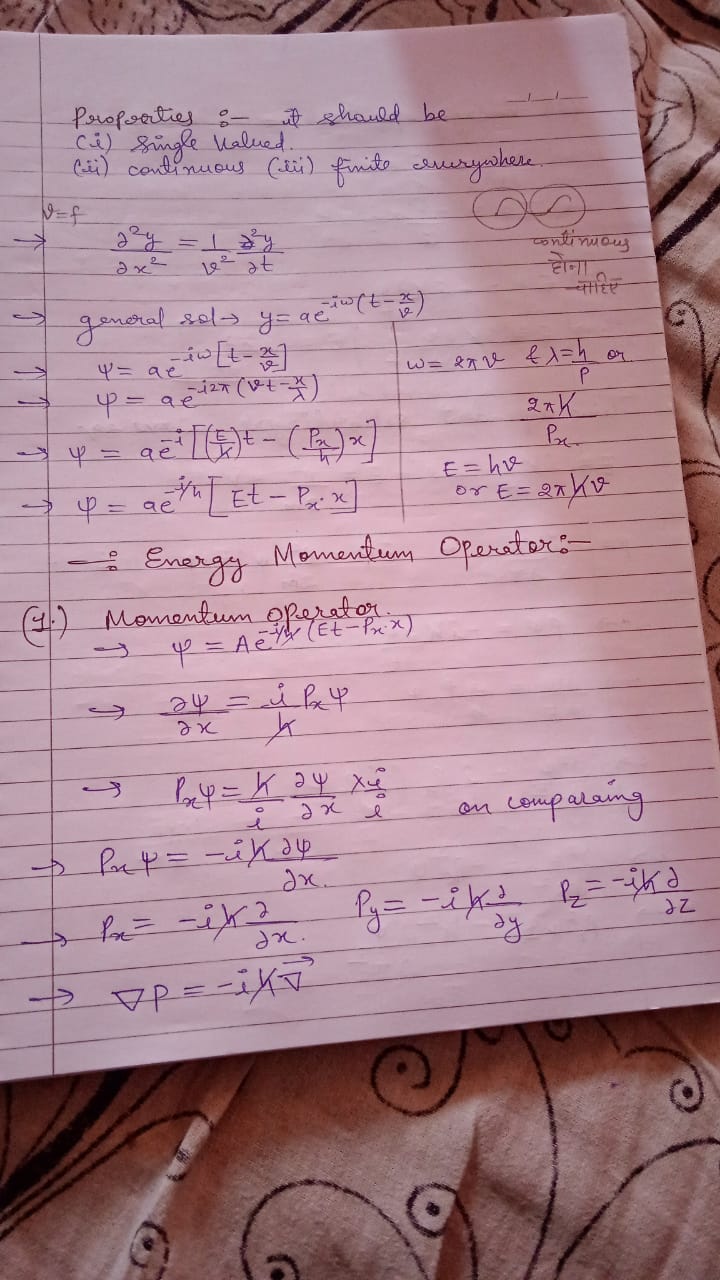 Properties :- it should be
(i) Single Valued.
(ii) continuous (iii) finite everywhere.
ν=f
→ ∂²y/∂x² = 1/v² ∂²y/∂t
continuous
होना
चाहिए
→ general sol→ y= ae^-iω(t-x/v)
→ ψ= ae^-iω[t-x/v]
ω= 2πν & λ=h/p or
→ ψ= ae^-i2π(νt-x/λ)
2πħ/Px.
→ ψ = ae^-i[(E/ħ)t - (Px/ħ)x]
E = hν
or E = 2πħν
→ ψ = ae^-i/ħ[Et - Px.x]
—: Energy Momentum Operator:—
(1.) Momentum operator.
→ ψ = Ae^-i/ħ(Et-Px.x)
→ ∂ψ/∂x = i/ħ Pxψ
→ Pxψ = ħ/i ∂ψ/∂x × i/i on comparaing
→ Pxψ = -iħ∂ψ/∂x.
→ Px= -iħ∂/∂x. Py= -iħ∂/∂y Pz = -iħ∂/∂z
→ ∇P = -iħ∇⃗